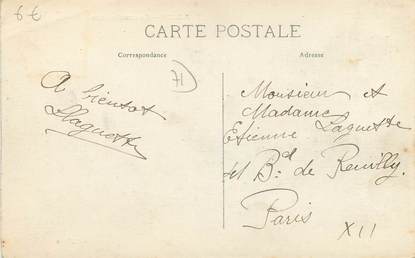 6€
CARTE POSTALE
Correspondance
Adresse
71
A bientot
Laquette
Monsieur et
Madame
Etienne Laquette
41 Bd de Reuilly.
Paris
XII